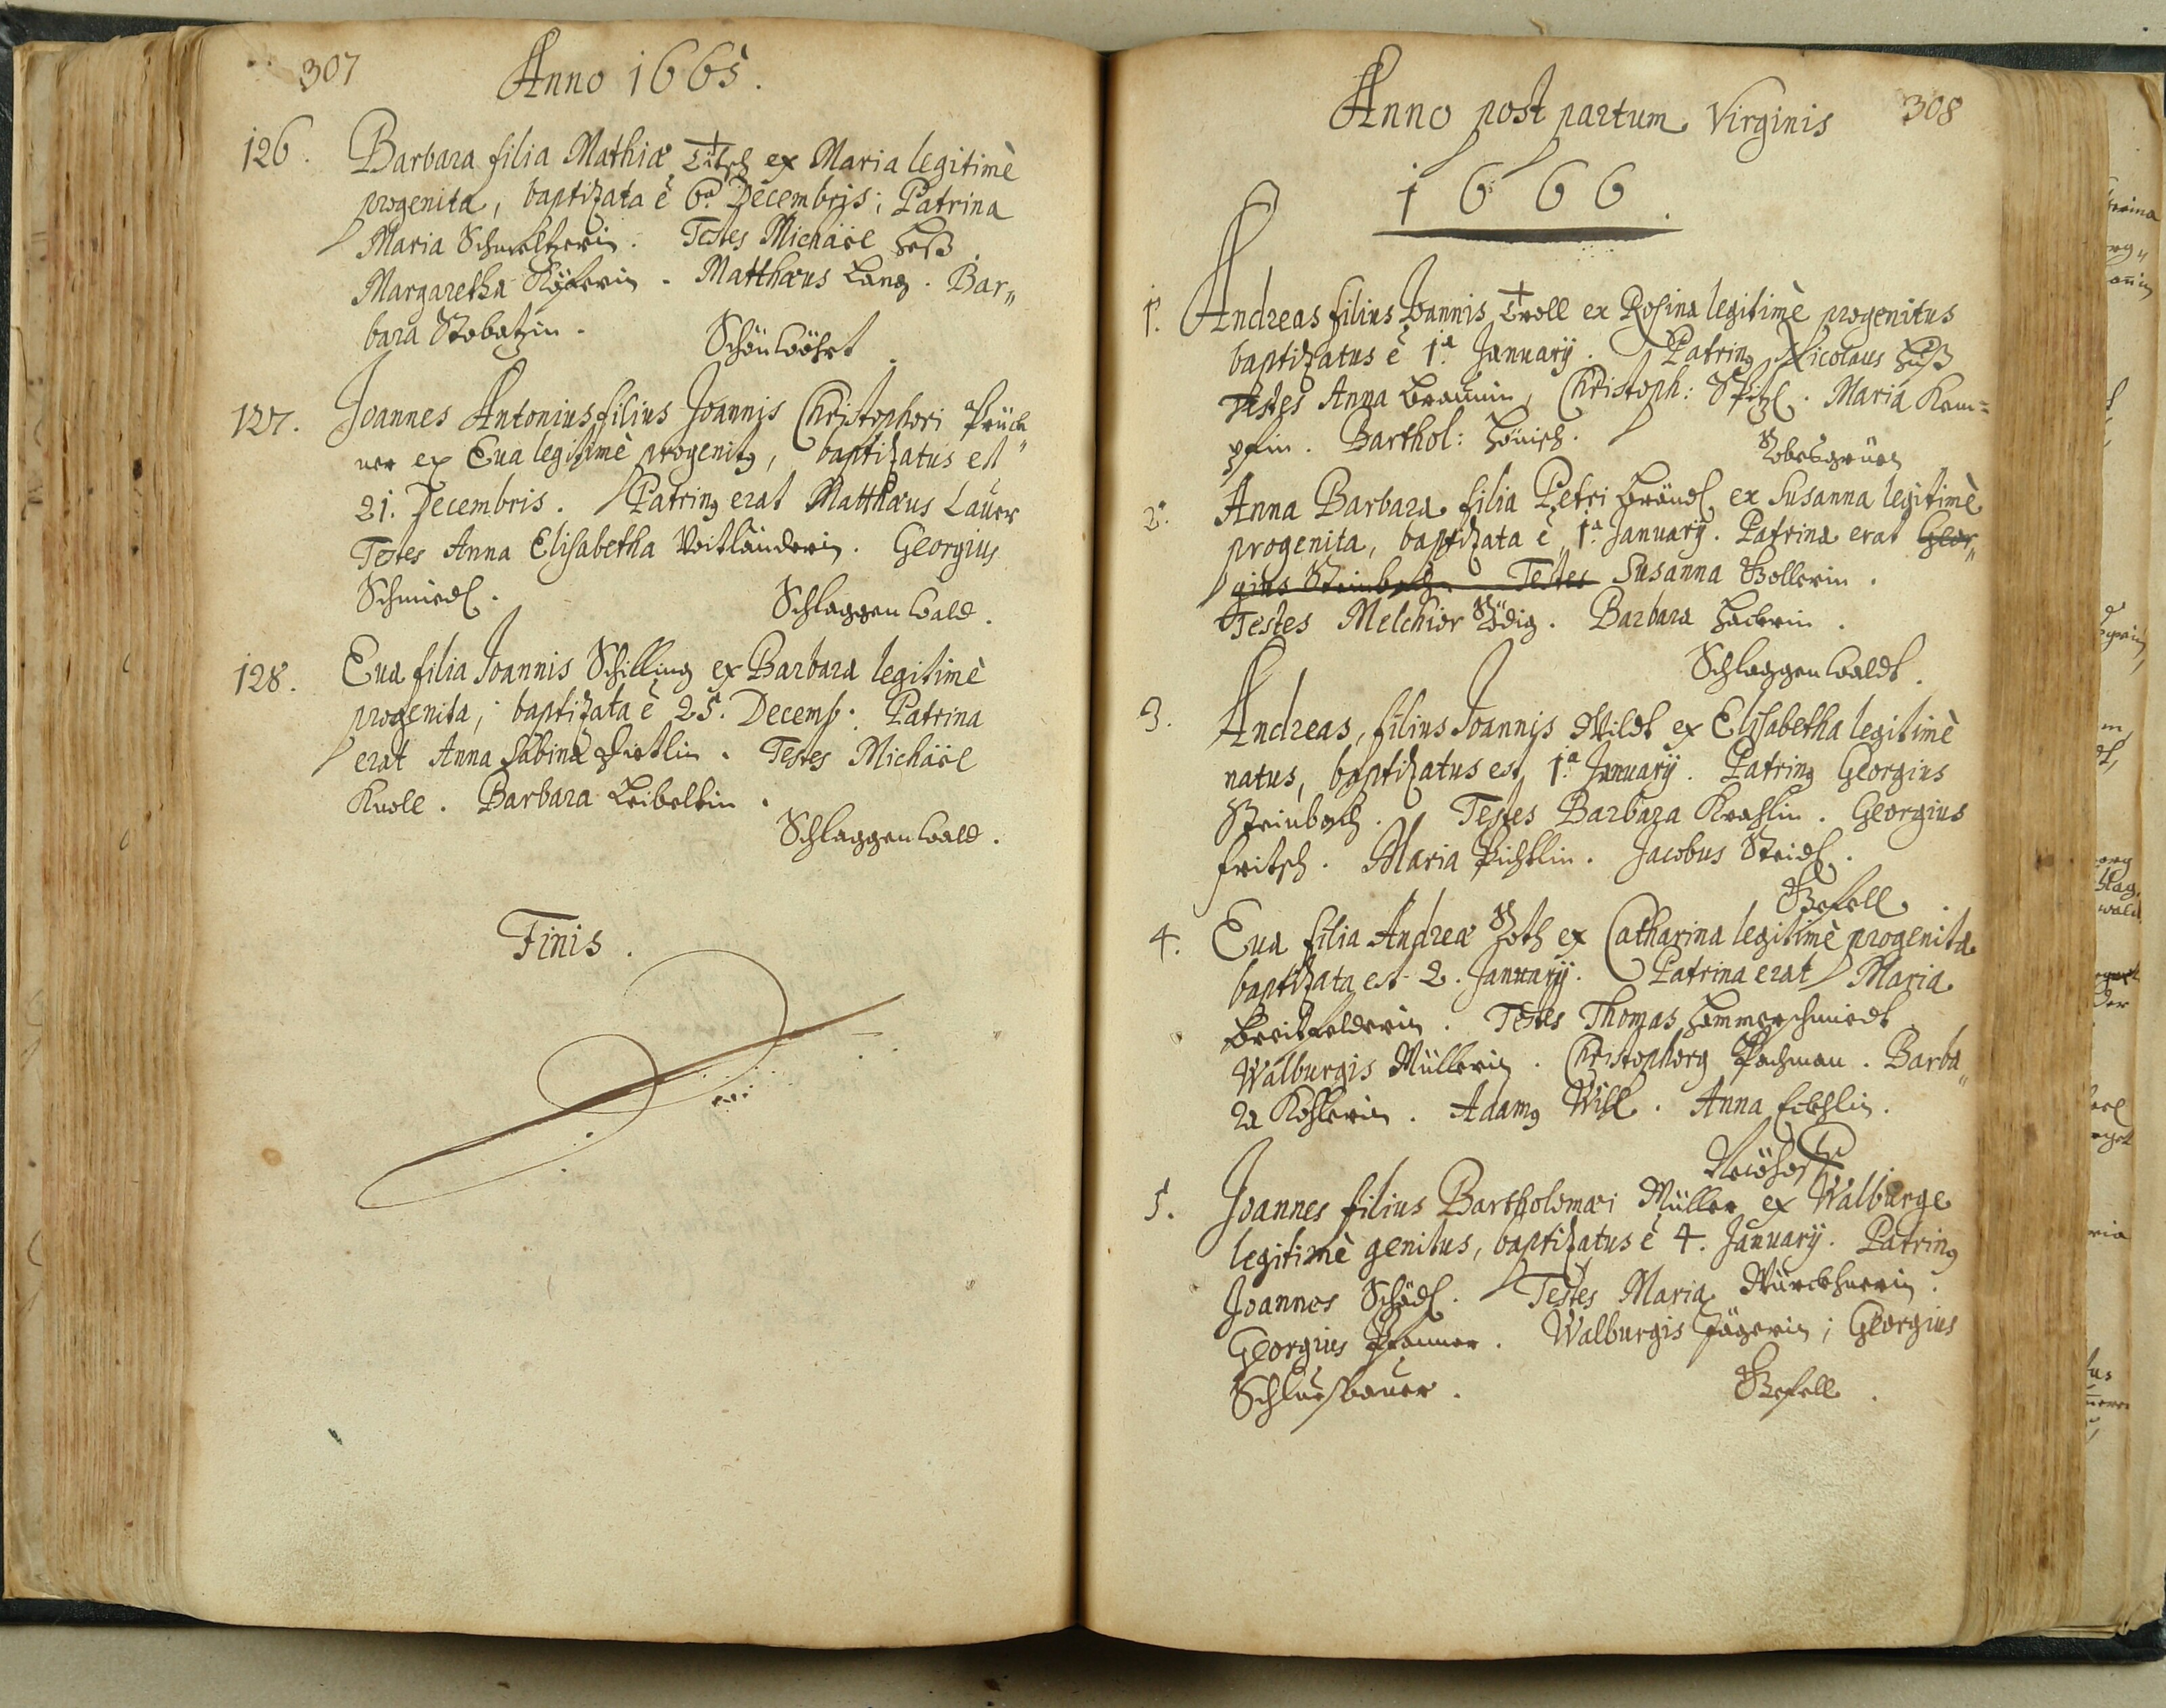 307
Anno 1665.
126. Barbara filia Mathiæ Titsch ex Maria legitimè
progenita, baptizata ē 6ª Decembris; Patrina
Maria Schmeltzerin. Testes Michäel Heß
Margaretha Matthæus Lang. Bar„
bara Stobatzin.
Schönwöhrt.
127. Joannes Antonius filius Joannis Christophori Prück„
ner ex Eua legitimè progenitꝰ, baptizatus est
21. Decembris. Patrinꝰ erat Matthæus Lauer
Testes Anna Elisabetha Voitländerin. Georgius
Schmiedl.
Schlaggenwald.
128. Eua filia Joannis Schilling ex Barbara legitimè
progenita, baptizata ē 25. Decemb: Patrina
erat Anna Sabina Testes Michäel
Knoll. Barbara Leibeltin.
Schlaggenwald.
Finis.
308
Anno post partum Virginis
1666.
1. Andreas filius Joannis Troll ex Rosina legitimè progenitus
baptizatus ē 1ª January. Patrinꝰ Nicolaus Huß
Testes Anna Braunin, Christoph: Spitzl. Maria Kem=
pfin. Barthol: Hönisch.
Robesgrüen
2. Anna Barbara filia Petri Bräundl ex Susanna legitimè
progenita, baptizata ē 1ª January. Patrina erat Geor„
gius Steinbach. Testes Susanna Gollerin.
Testes Melchior Rödig. Barbara Hackerin.
Schlaggenwaldt.
3. Andreas, filius Joannis Wildt ex Elisabetha legitimè
natus, baptizatus est 1ª January. Patrinꝰ Georgius
Steinbach. Testes Barbara Kraslin. Georgius
Fritsch. Maria Püchtlin. Jacobus Steidl.
Gefell.
4. Eua filia Andreæ Roth ex Catharina legitimè progenita
baptizata est 2. January. Patrina erat Maria
Breitfelderin. Testes Thomas Hammerschmiedt
Walburgis Müllerin. Christophorꝰ Pachman. Barba„
ra Kohlerin. Adamꝰ Will. Anna
Neühoff
5. Joannes filius Bartholomæi Müller ex Walburge
legitimè genitus, baptizatus ē 4. January. Patrinꝰ
Joannes Schödl. Testes Maria
Georgius Pfanner. Walburgis Jägerin; Georgius
Schluesbauer.
Gefell.